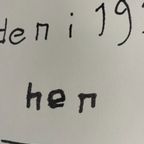 den i 19
hen